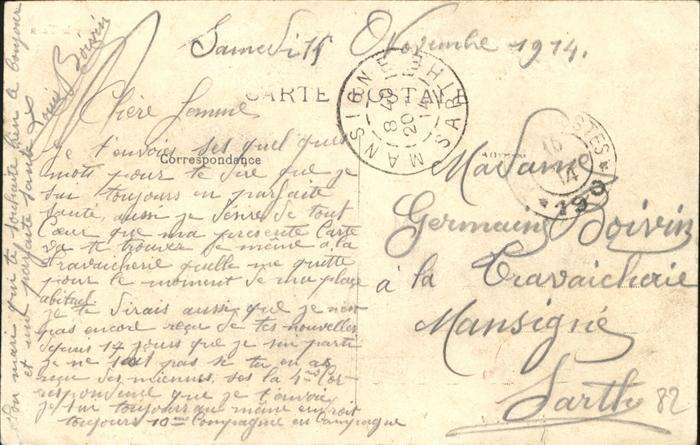 Samedi 14 Novembre 1914.
CARTE POSTALE
Correspondance
MANSIGNÉ
SARTHE
8 40
20
14
Chère femme
Je t'envoies ses quel ques
mots pour te dire que je
sui toujours en parfaite
santé, aussi je désire de tout
Cœur que ma présente Carte
va te trouver de même a la
Travaicherie quelle me quitte
pour le moment de ma place
abituel
Je te dirais aussi que je n'est
pas encore reçu de tes nouvelles
depuis 17 jours que je sui parti
je ne sait pas si tu en as
reçue des miennes, ses la 4me Cor-
respondense que je t'envoie
je sui toujours au même endroit
toujours 10me Compagnie en Campagne
Ton mari qui te souhaite bien le bonjour
et une parfaite santé
Boivin
Madame
Germain Boivin
à la Travaicherie
Mansigné
Sarthe
82
POSTES
14
*190*